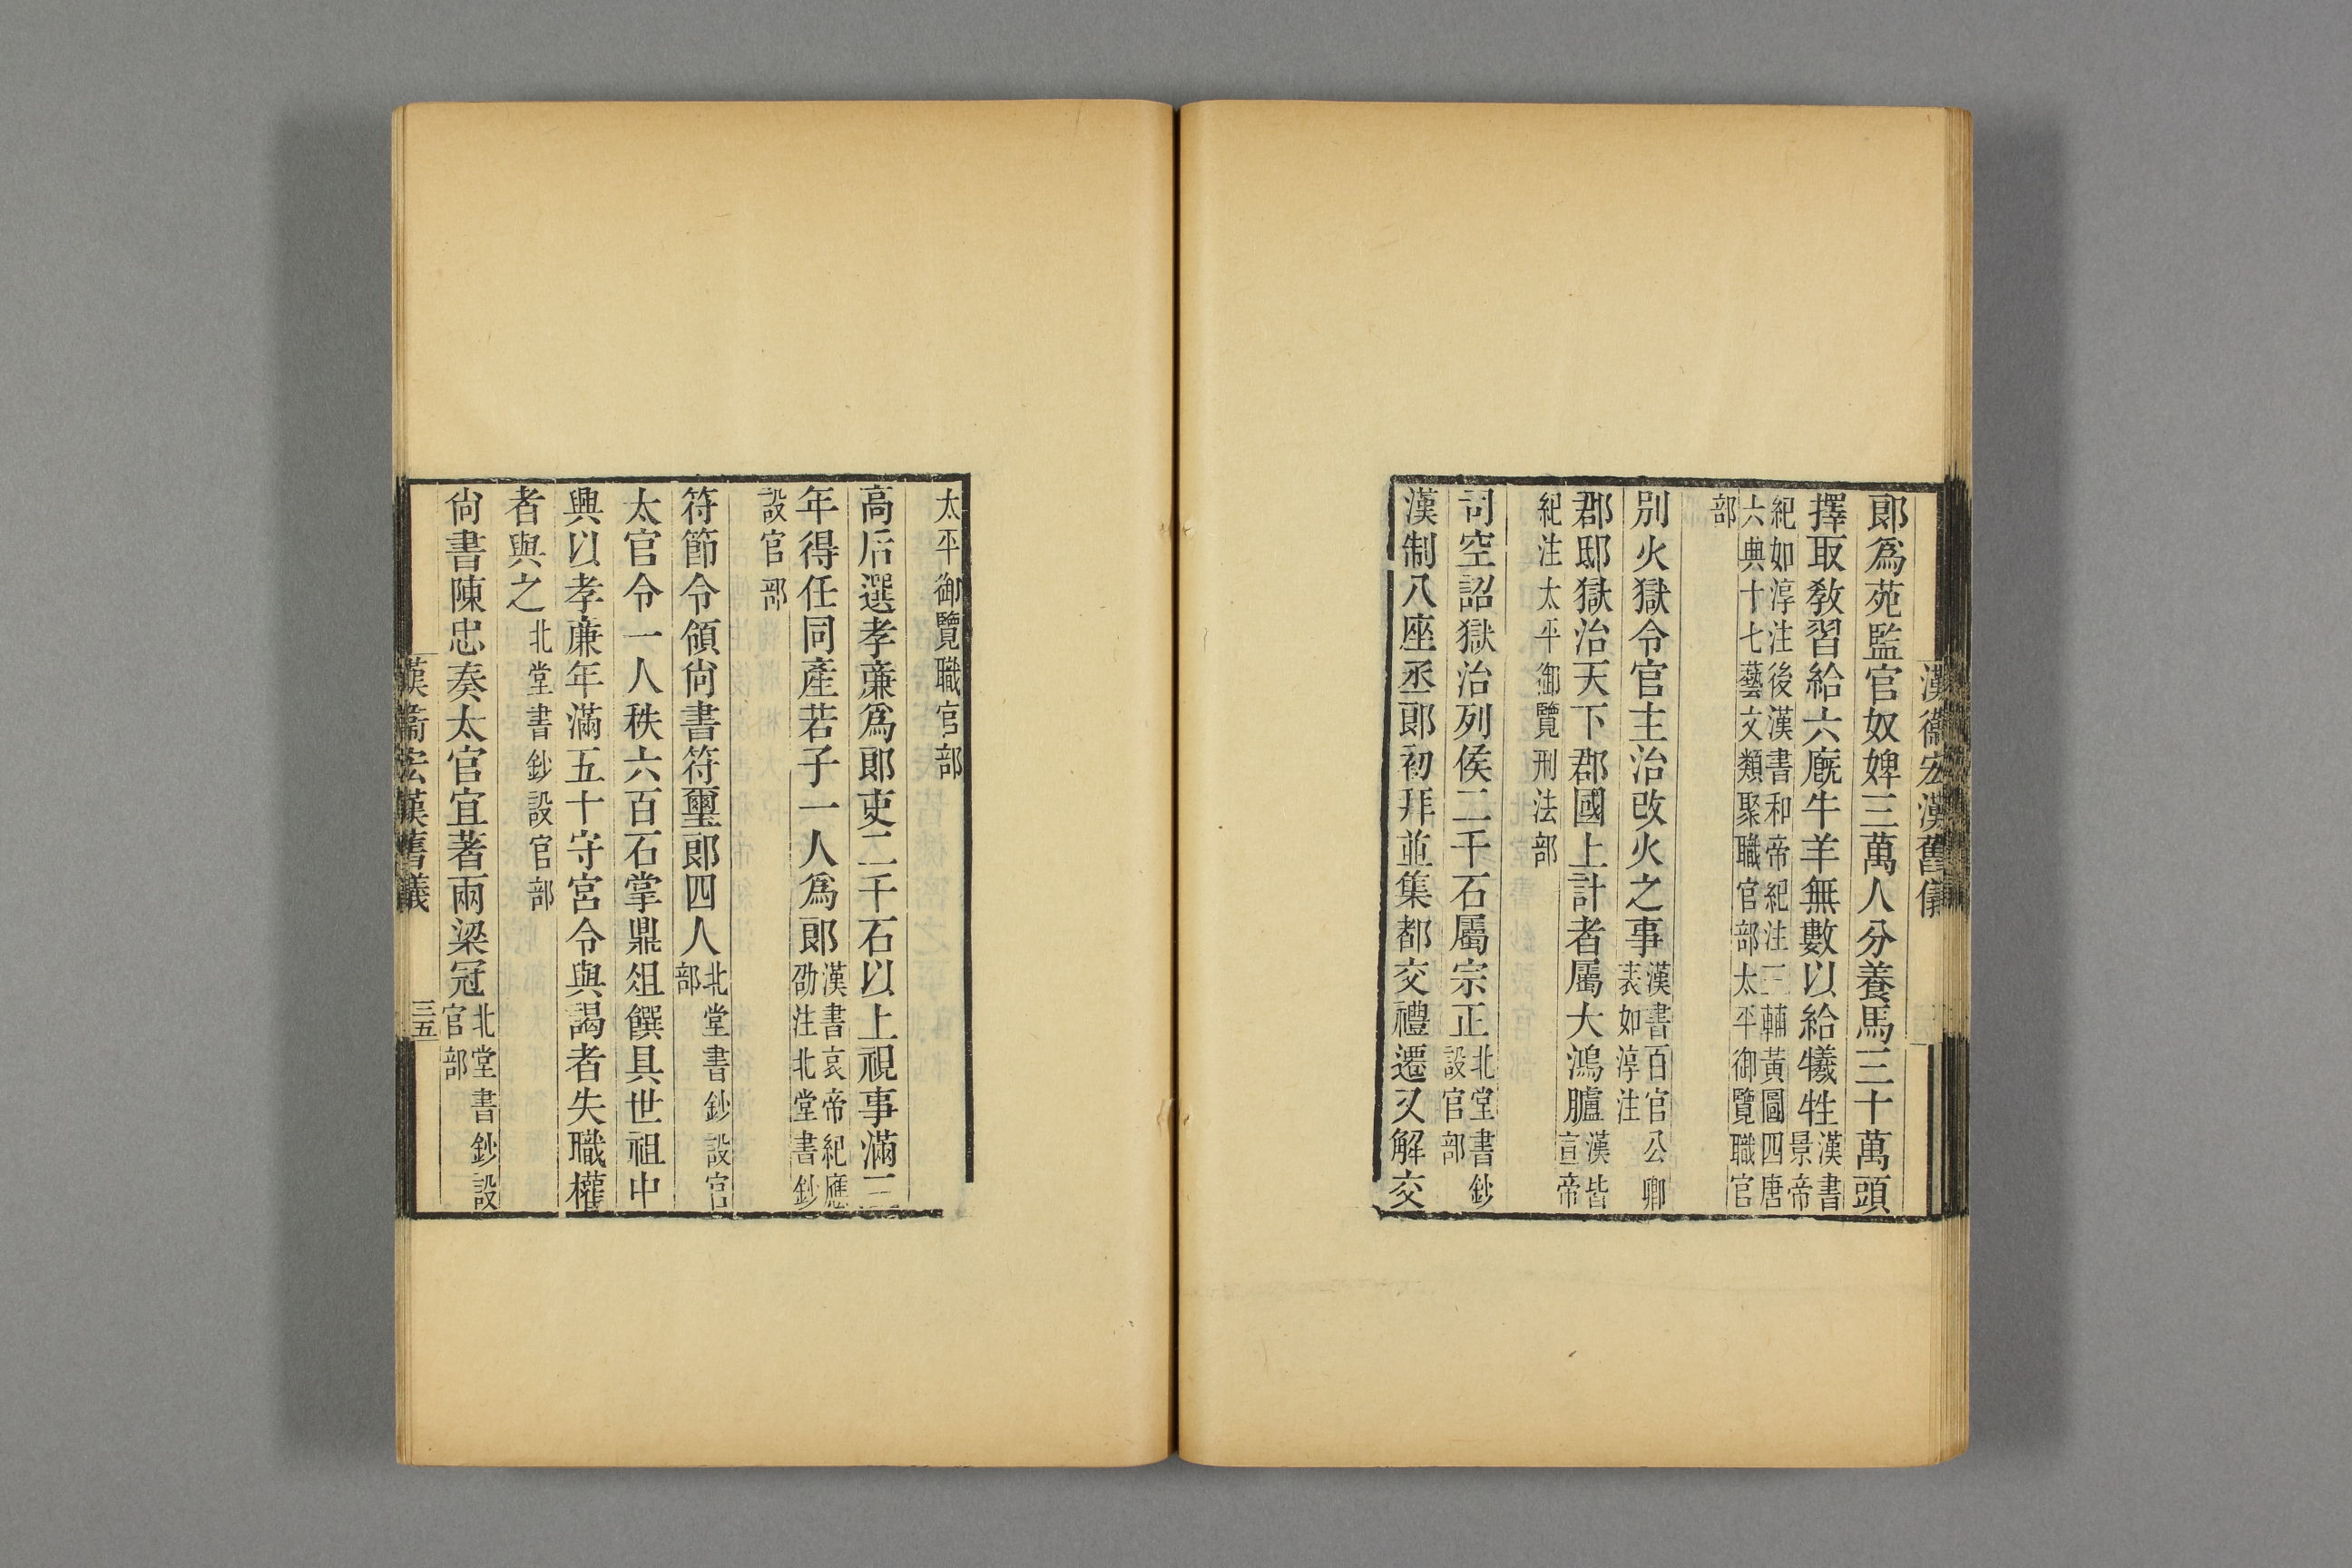 漢衞宏漢舊儀
郞爲苑監官奴婢三萬人分養馬三十萬頭
擇取敎習給六廐牛羊無數以給犧牲漢書景帝
紀如淳注後漢書和帝紀注三輔黃圖四唐六典十七藝文類聚職官部太平御覽職官
部
別火獄令官主治改火之事漢書百官公卿表如淳注
郡邸獄治天下郡國上計者屬大鴻臚漢皆宣帝
紀注太平御覽刑法部
司空詔獄治列侯二千石屬宗正北堂書鈔設官部
漢制八座丞郞初拜並集都交禮遷又解交
太平御覽職官部
高后選孝廉爲郞吏二千石以上視事滿三
年得任同產若子一人爲郞漢書哀帝紀應劭注北堂書鈔
設官部
符節令領尙書符璽郞四人北堂書鈔設官部
太官令一人秩六百石掌鼎俎饌具世祖中
興以孝廉年滿五十守宮令與謁者失職權
者與之北堂書鈔設官部
尙書陳忠奏太官宜著兩梁冠北堂書鈔設官部
漢衞宏漢舊儀
三五